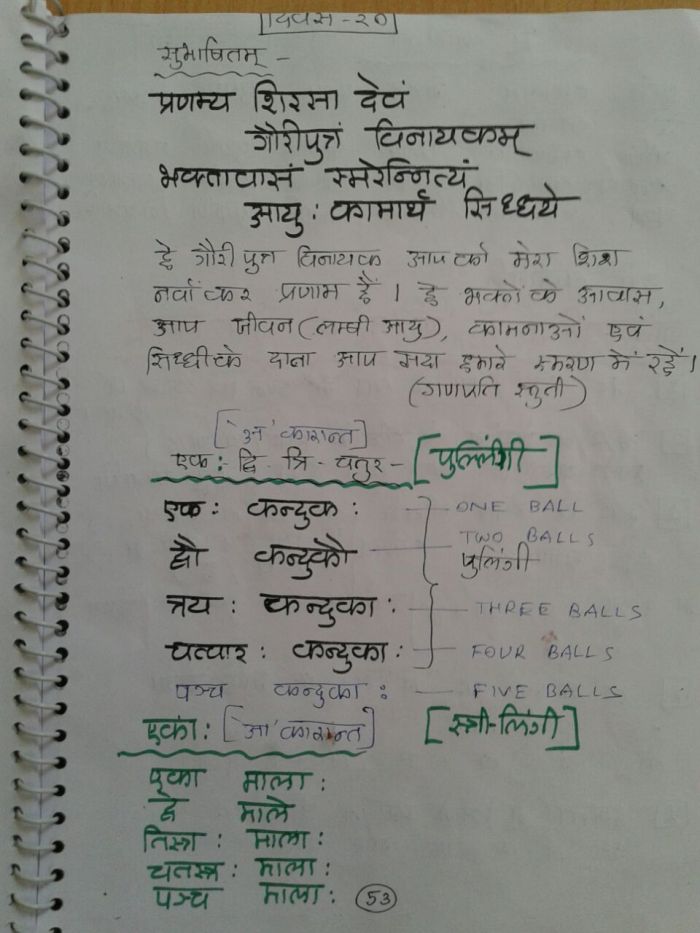 दिवस - २०
सुभाषितम् -
प्रणम्य शिरसा देवं
गौरीपुत्रं विनायकम्
भक्तावासं स्मरेन्नित्यं
आयु: कामार्थ सिध्धये
हे गौरीपुत्र विनायक आपको मेरा शिश
नवाँकर प्रणाम हैं । हे भक्तोंके आवास,
आप जीवन (लम्बी आयु), कामनाओं एवं
सिध्धीके दाना आप सदा हमारे स्मरण में रहें।
(गणपति स्तुती)
['अ' कारान्त]
एक: - द्वि - त्रि - चतुर - [पुल्लिंगी]
एक: कन्दुक: - ONE BALL
द्वौ कन्दुकौ - TWO BALLS
पुलिंगी
त्रय: कन्दुका: - THREE BALLS
चत्वार: कन्दुका: - FOUR BALLS
पञ्च कन्दुका: - FIVE BALLS
एका: ['आ' कारान्त] [स्त्री-लिंगी]
एका माला:
द्वे माले
तिस्त्र: माला:
चतस्त्र: माला:
पञ्च माला: 53